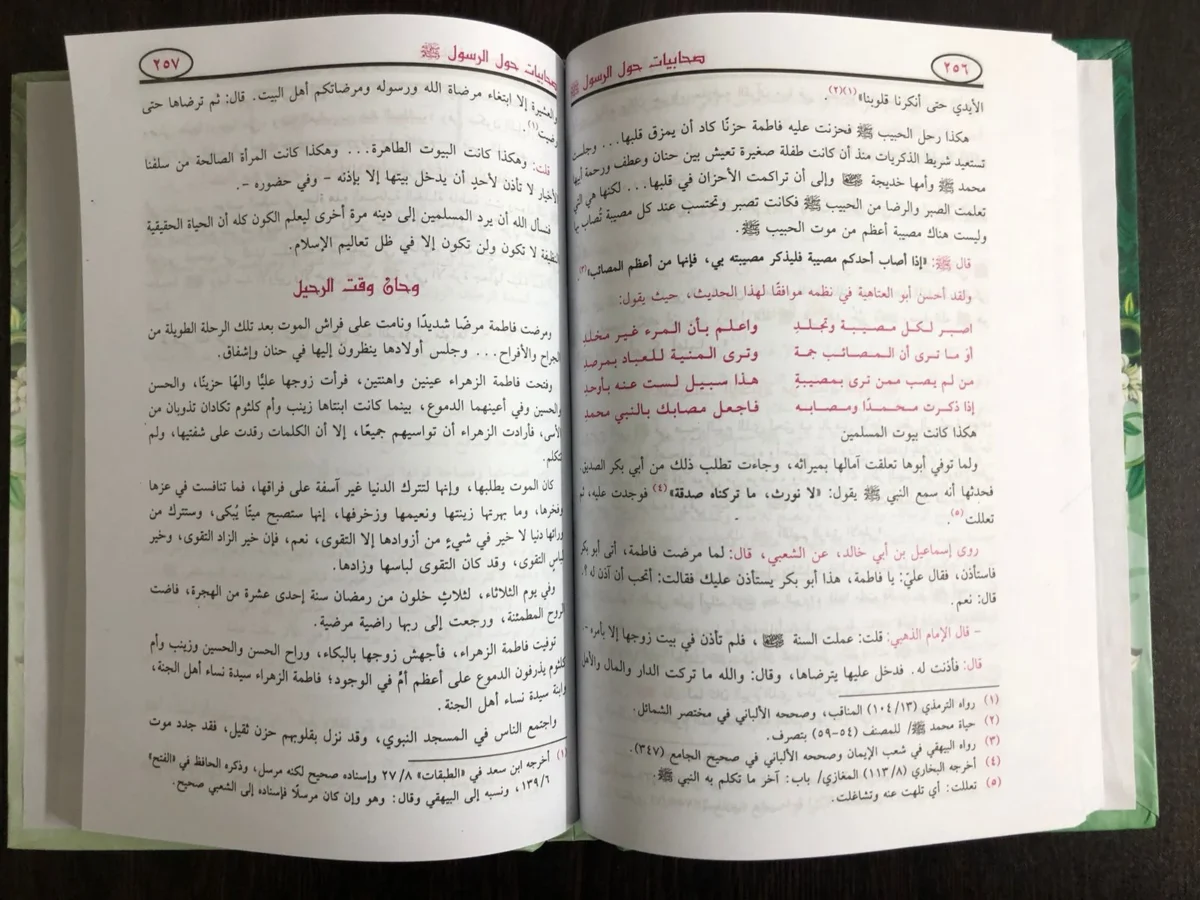 صحابيات حول الرسول ﷺ
٢٥٦
الأيدي حتى أنكرنا قلوبنا»(١)(٢).
هكذا رحل الحبيب ﷺ فحزنت عليه فاطمة حزنًا كاد أن يمزق قلبها... وجلست
تستعيد شريط الذكريات منذ أن كانت طفلة صغيرة تعيش بين حنان وعطف ورحمة أبيها
محمد ﷺ وأمها خديجة وإلى أن تراكمت الأحزان في قلبها... لكنها هي التي
تعلمت الصبر والرضا من الحبيب ﷺ فكانت تصبر وتحتسب عند كل مصيبة تُصاب بها
وليست هناك مصيبة أعظم من موت الحبيب ﷺ.
قال ﷺ: «إذا أصاب أحدكم مصيبة فليذكر مصيبته بي، فإنها من أعظم المصائب»(٣).
ولقد أحسن أبو العتاهية في نظمه موافقًا لهذا الحديث، حيث يقول:
اصبر لكل مصيبة وتجلد واعلم بأن المرء غير مخلد
أوَ ما ترى أن المصائب جمة وترى المنية للعباد بمرصد
من لم يصب ممن ترى بمصيبةٍ هذا سبيل لست عنه بأوحد
إذا ذكرت محمدًا ومصابه فاجعل مصابك بالنبي محمد
هكذا كانت بيوت المسلمين
ولما توفي أبوها تعلقت آمالها بميراثه، وجاءت تطلب ذلك من أبي بكر الصديق
فحدثها أنه سمع النبي ﷺ يقول: «لا نورث، ما تركناه صدقة»(٤) فوجدت عليه، ثم
تعللت(٥).
روى إسماعيل بن أبي خالد، عن الشعبي، قال: لما مرضت فاطمة، أتى أبو بكر
فاستأذن، فقال عليّ: يا فاطمة، هذا أبو بكر يستأذن عليك فقالت: أتحب أن آذن له ؟.
قال: نعم.
- قال الإمام الذهبي: قلت: عملت السنة ، فلم تأذن في بيت زوجها إلا بأمره -.
قال: فأذنت له. فدخل عليها يترضاها، وقال: والله ما تركت الدار والمال والأهل
(١) رواه الترمذي (١٠٤/١٣) المناقب، وصححه الألباني في مختصر الشمائل.
(٢) حياة محمد ﷺ/ للمصنف (٥٤-٥٩) بتصرف.
(٣) رواه البيهقي في شعب الإيمان وصححه الألباني في صحيح الجامع (٣٤٧).
(٤) أخرجه البخاري (١١٣/٨) المغازي/ باب: آخر ما تكلم به النبي ﷺ.
(٥) تعللت: أي تلهت عنه وتشاغلت.
صحابيات حول الرسول ﷺ
٢٥٧
والعشيرة إلا ابتغاء مرضاة الله ورسوله ومرضاتكم أهل البيت. قال: ثم ترضاها حتى
رضيت(١).
قلت: وهكذا كانت البيوت الطاهرة... وهكذا كانت المرأة الصالحة من سلفنا
الأخيار لا تأذن لأحدٍ أن يدخل بيتها إلا بإذنه - وفي حضوره -.
فنسأل الله أن يرد المسلمين إلى دينه مرة أخرى ليعلم الكون كله أن الحياة الحقيقية
النظيفة لا تكون ولن تكون إلا في ظل تعاليم الإسلام.
وحان وقت الرحيل
ومرضت فاطمة مرضًا شديدًا ونامت على فراش الموت بعد تلك الرحلة الطويلة من
الجراح والأفراح... وجلس أولادها ينظرون إليها في حنان وإشفاق.
وفتحت فاطمة الزهراء عينين واهنتين، فرأت زوجها عليًّا والهًا حزينًا، والحسن
والحسين وفي أعينهما الدموع، بينما كانت ابنتاها زينب وأم كلثوم تكادان تذوبان من
الأسى، فأرادت الزهراء أن تواسيهم جميعًا، إلا أن الكلمات رقدت على شفتيها، ولم
تتكلم.
كان الموت يطلبها، وإنها لتترك الدنيا غير آسفة على فراقها، فما تنافست في عزها
وفخرها، وما بهرتها زينتها ونعيمها وزخرفها، إنها ستصبح ميتًا يُبكى، وستترك من
ورائها دنيا لا خير في شيءٍ من أزوادها إلا التقوى، نعم، فإن خير الزاد التقوى، وخير
لباس التقوى، وقد كان التقوى لباسها وزادها.
وفي يوم الثلاثاء، لثلاثٍ خلون من رمضان سنة إحدى عشرة من الهجرة، فاضت
الروح المطمئنة، ورجعت إلى ربها راضية مرضية.
توفيت فاطمة الزهراء، فأجهش زوجها بالبكاء، وراح الحسن والحسين وزينب وأم
كلثوم يذرفون الدموع على أعظم أمٍّ في الوجود؛ فاطمة الزهراء سيدة نساء أهل الجنة،
وابنة سيدة نساء أهل الجنة.
واجتمع الناس في المسجد النبوي، وقد نزل بقلوبهم حزن ثقيل، فقد جدد موت
(١) أخرجه ابن سعد في «الطبقات» ٢٧/٨ وإسناده صحيح لكنه مرسل، وذكره الحافظ في «الفتح»
١٣٩/٦، ونسبه إلى البيهقي وقال: وهو وإن كان مرسلًا فإسناده إلى الشعبي صحيح.